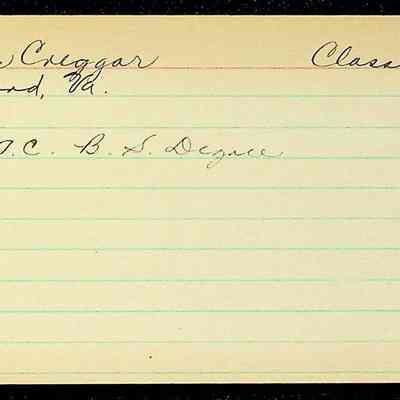 Creggar Class
rd, Va.
T.C. B. S. Degree